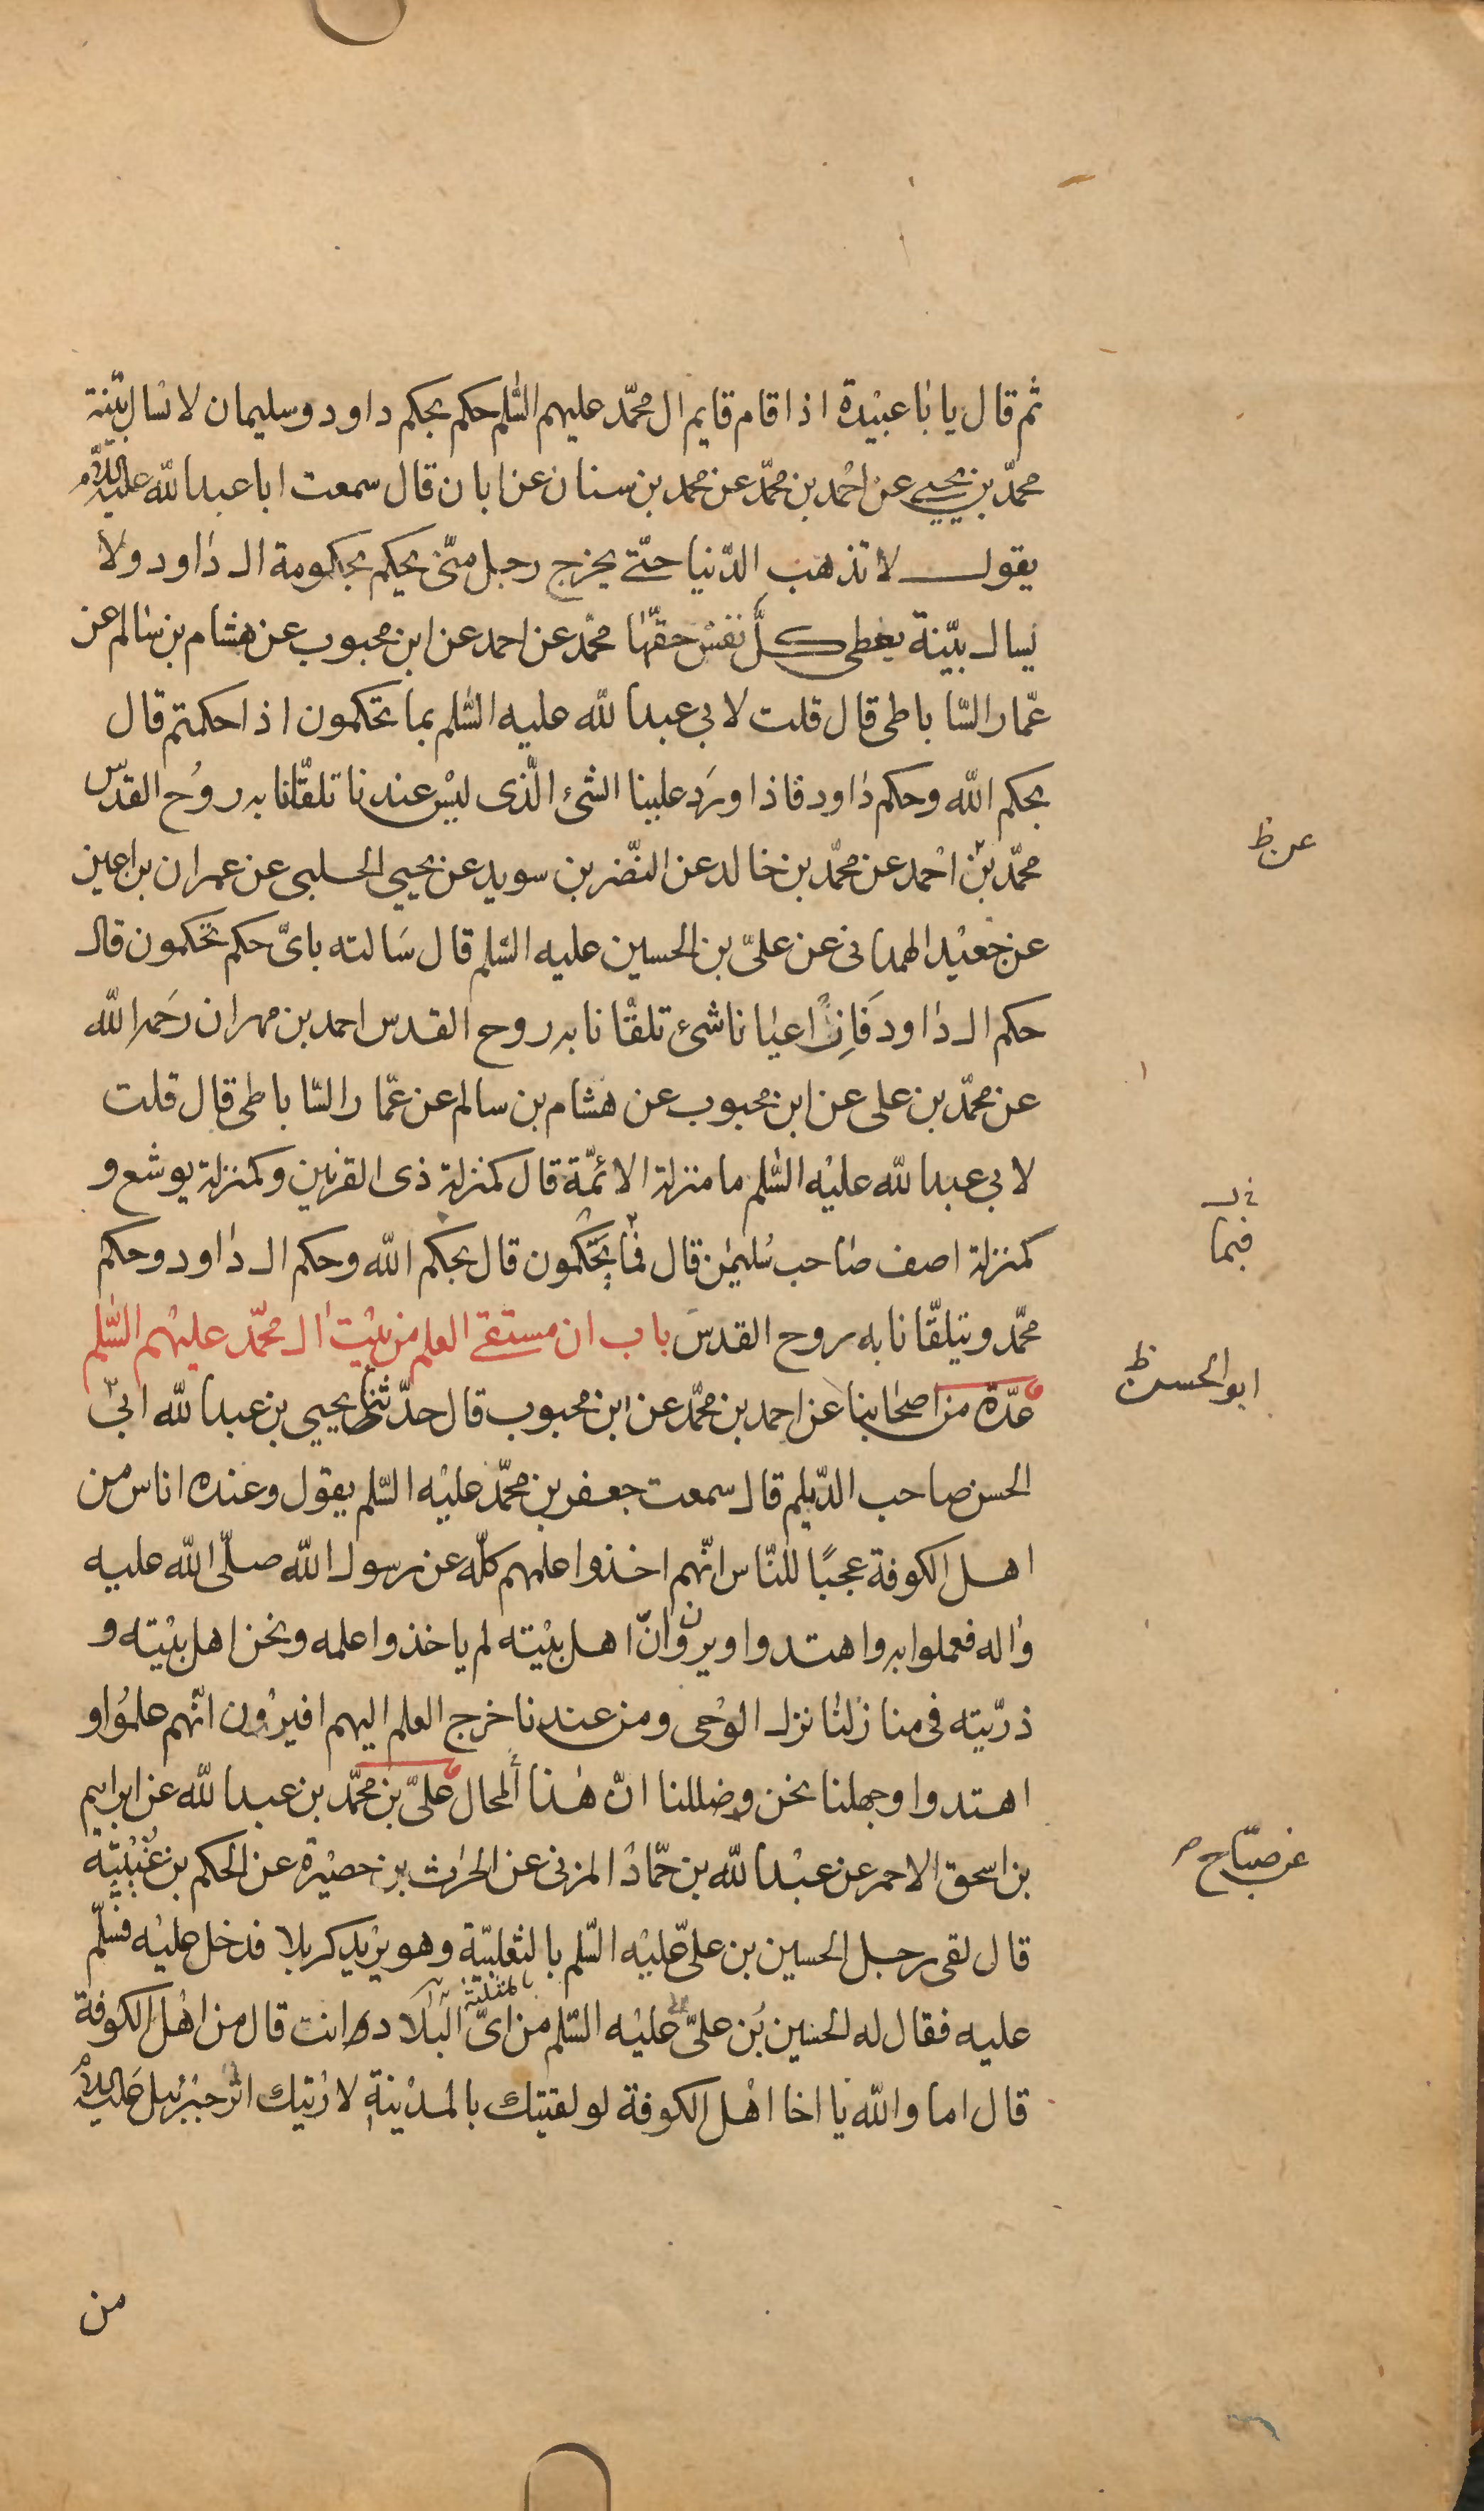 ثم قال يا با عبيدة اذا قام قايم ال محمّد عليهم السّلم حكم بحكم داود وسليمان لا نسال بيّنة
محمّد بن يحيى عن احمد بن محمّد عن محمد بن سنان عن ابان قال سمعت ابا عبدالله عليه السّلام
يقول لا تذهب الدّنيا حتّى يخرج رجل منّى يحكم بحكومة ال داود ولا
يسال بيّنة يعطى كلّ نفس حقّها محمّد عن احمد عن ابن محبوب عن هشام بن سالم عن
عمّار السّاباطى قال قلت لابي عبدالله عليه السّلم بما تحكمون اذا حكمتم قال
بحكم الله وحكم داود فاذا ورد علينا الشئ الّذى ليس عندنا تلقّانا به روح القدس
محمّد بن احمد عن محمّد بن خالد عن النّضر بن سويد عن يحيي الحلبى عن عمران بن اعين
عن جعيد الهمدانى عن عليّ بن الحسين عليه السّلم قال سالته باىّ حكم تحكمون قال
حكم ال داود فان اعيانا شئ تلقّانا به روح القدس احمد بن مهران رحمه الله
عن محمّد بن على عن ابن محبوب عن هشام بن سالم عن عمّار السّاباطى قال قلت
لابي عبدالله عليه السّلم ما منزلة الائمّة قال كمنزلة ذى القرنين وكمنزلة يوشع و
كمنزلة اصف صاحب سليمن قال فما تحكمون قال بحكم الله وحكم ال داود وحكم
محمّد ويتلقّانا به روح القدس باب ان مستقى العلم من بيت ال محمّد عليهم السّلم
عدّة من اصحابنا عن احمد بن محمّد عن ابن محبوب قال حدّثنا يحيي بن عبدالله ابي
الحسن صاحب الدّيلم قال سمعت جعفر بن محمّد عليه السّلم يقول وعنده اناس من
اهل الكوفة عجبًا للنّاس انّهم اخذوا علمهم كلّه عن رسول الله صلّى الله عليه
واله فعملوا به واهتدوا ويرون وانّ اهل بيته لم ياخذوا علمه ونحن اهل بيته و
ذرّيته فى منازلنا نزل الوحى ومن عندنا خرج العلم اليهم افيرون انّهم علموا و
اهتدوا وجهلنا نحن وضللنا انّ هذا لمحال علىّ بن محمّد بن عبدالله عن ابراهيم
بن اسحق الاحمر عن عبدالله بن حمّاد المزنى عن الحرث بن حصيرة عن الحكم بن عتيبة
قال لقى رجل الحسين بن علىّ عليه السّلم بالثعلبيّة وهو يريد كربلا فدخل عليه فسلّم
عليه فقال له الحسين بن علىّ عليه السّلم من اىّ البلاد انت قال من اهل الكوفة
قال اما والله يا اخا اهل الكوفة لو لقيتك بالمدينة لاريتك اثر جبرئيل عليه السّلام
من
عن ظ
فبما
ابو الحسن ظ
عن صبّاح